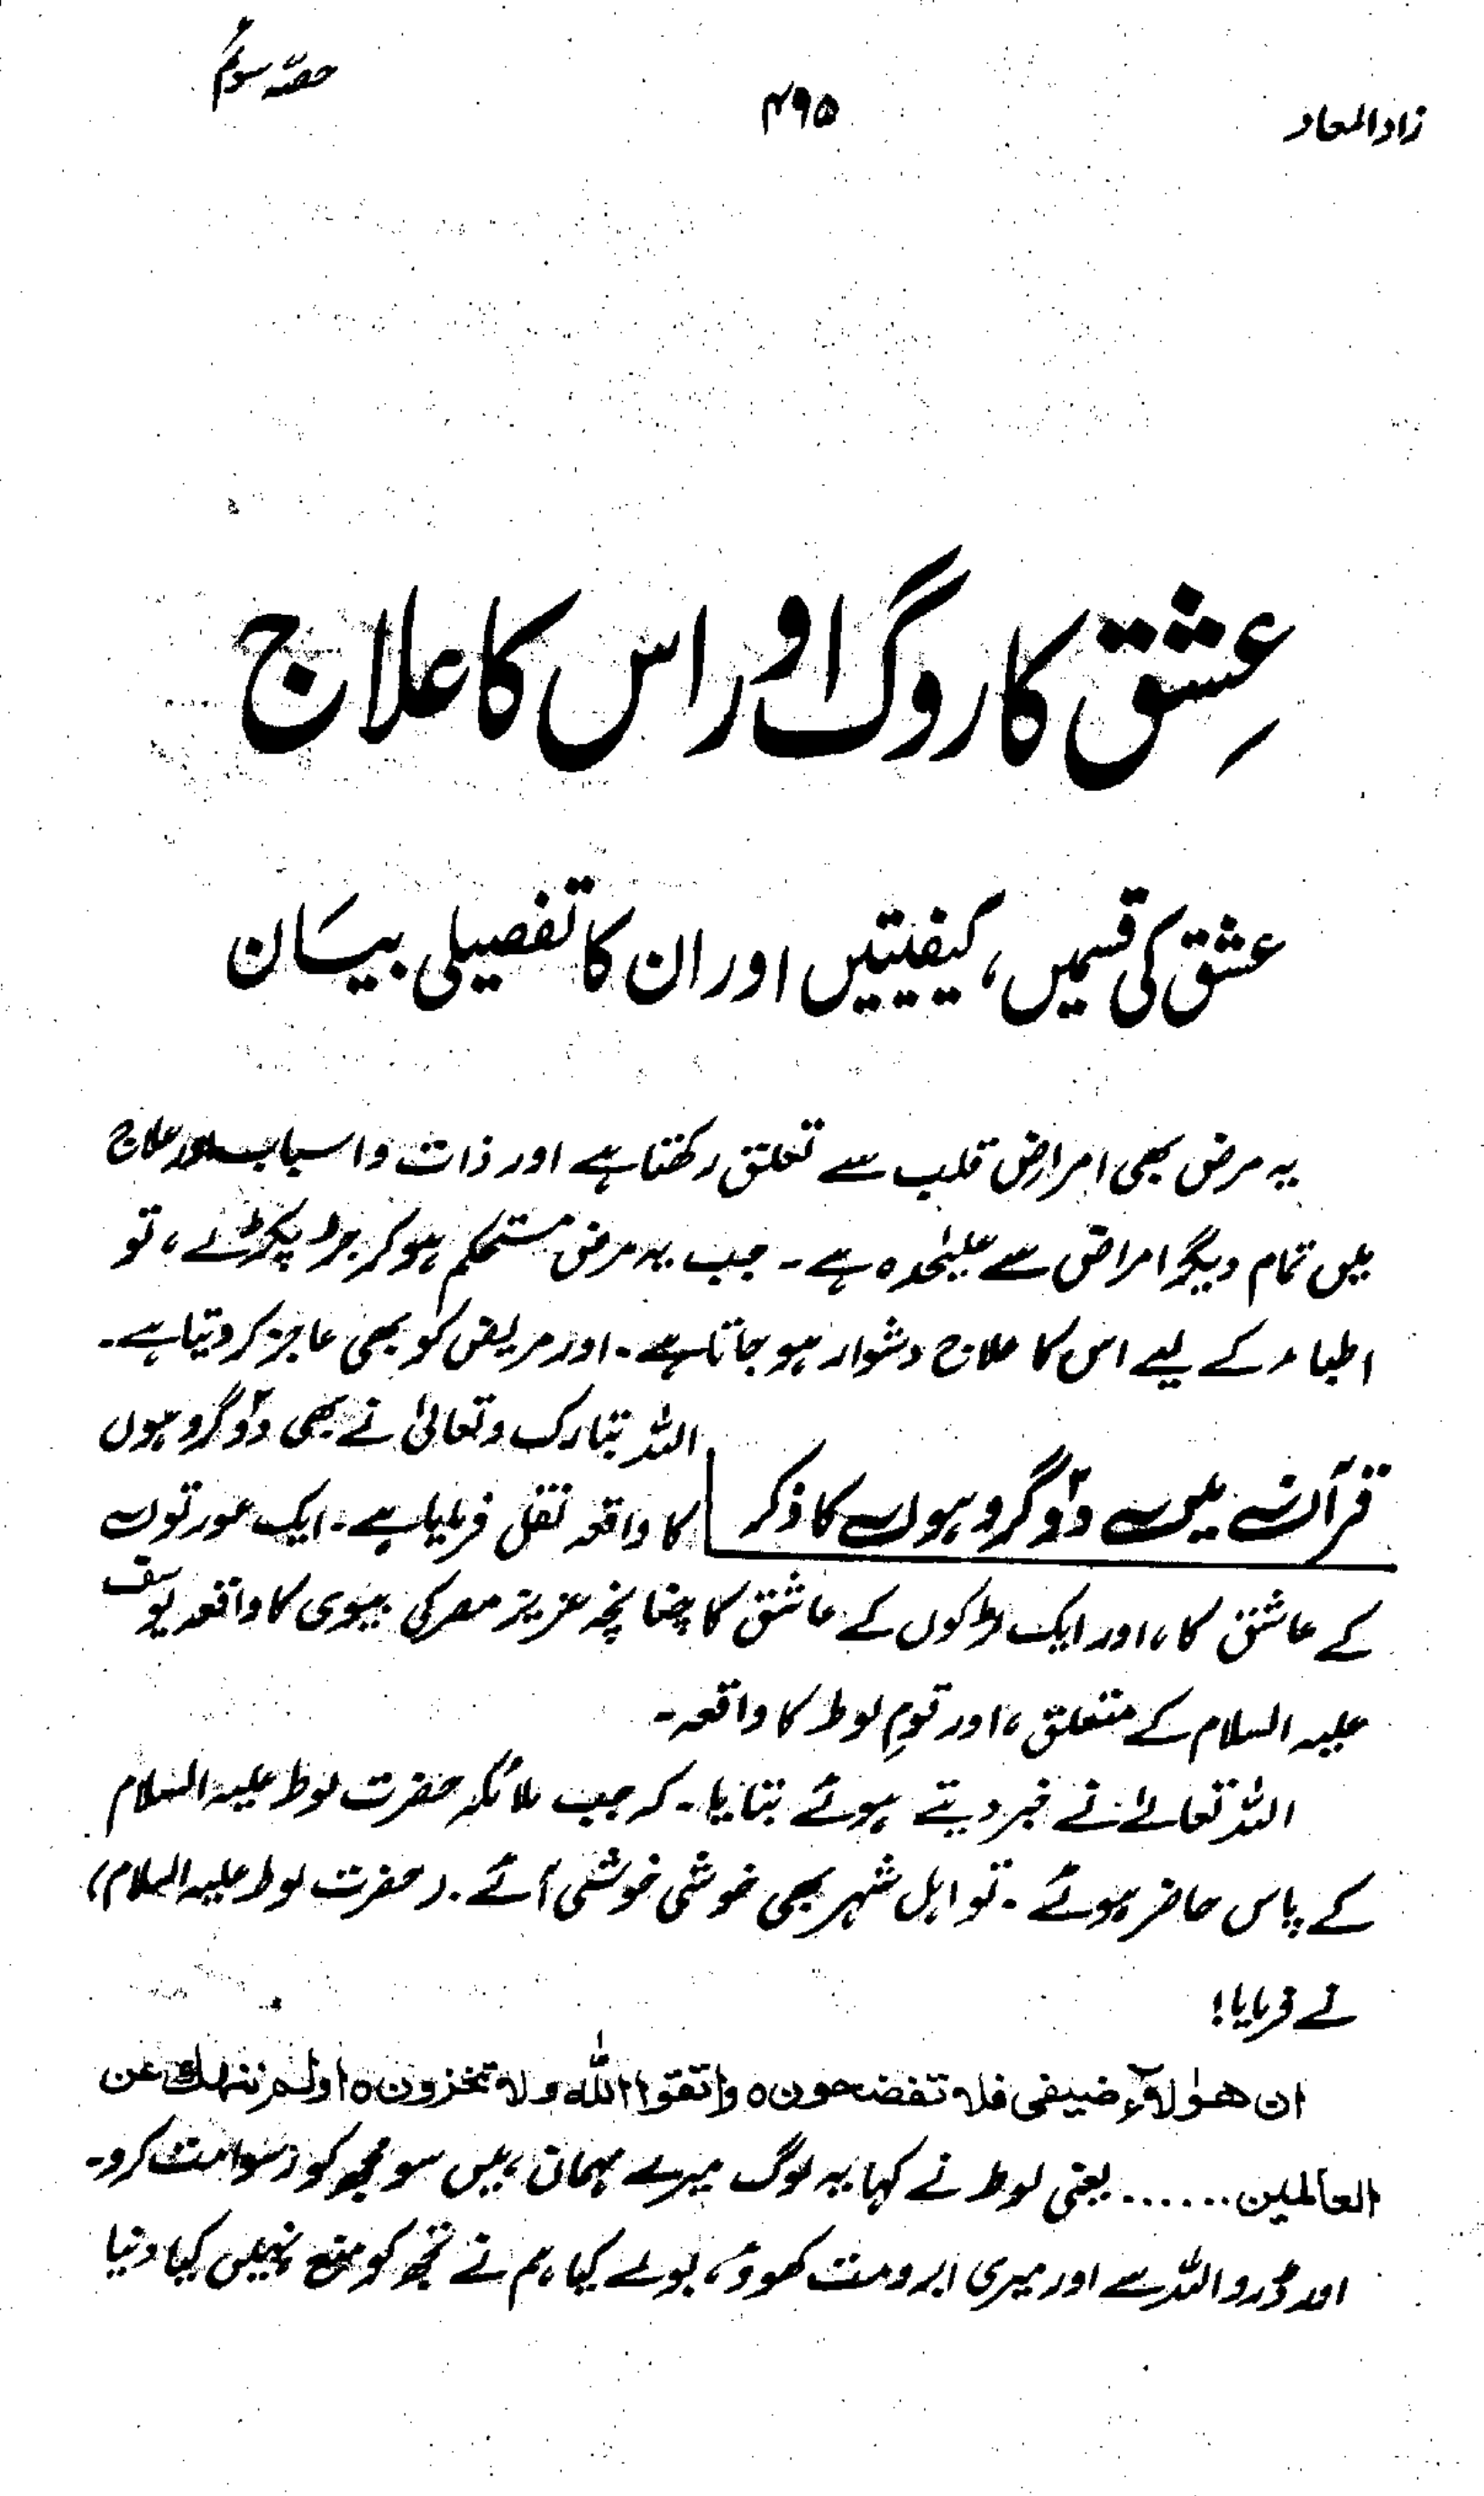 زاد المعاد
۴۹۵
حصّہ سوم
عِشق کا روگ اور اس کا علاج
عشق کی قسمیں، کیفیتیں اور ان کا تفصیلی بیان
یہ مرض بھی امراض قلب سے تعلق رکھتا ہے اور ذات و اسباب اور علاج
میں تمام دیگر امراض سے علیٰحدہ ہے۔ جب یہ مرض مستحکم ہو کر جڑ پکڑ لے، تو
اطباء کے لیے اس کا علاج دشوار ہو جاتا ہے۔ اور مریض کو بھی عاجز کر دیتا ہے۔
قرآن میں دو گروہوں کا ذکر
اللہ تبارک و تعالیٰ نے بھی دو گروہوں
کا واقعہ نقل فرمایا ہے۔ ایک عورتوں
کے عاشق کا، اور ایک لڑکوں کے عاشق کا چنانچہ عزیز مصر کی بیوی کا واقعہ یوسف
علیہ السلام کے متعلق، اور قومِ لوط کا واقعہ۔
اللہ تعالےٰ نے خبر دیتے ہوئے بتایا۔ کہ جب ملائکہ حضرت لوط علیہ السلام
کے پاس حاضر ہوئے۔ تو اہل شہر بھی خوشی خوشی آئے۔ (حضرت لوط علیہ السلام)
نے فرمایا!
ان هٰولاۤء ضيفى فلا تفضحون ہ واتقوا اللّٰه ولا تخزون ہ اولم ننهك عن
العالمين ...... یعنی لوط نے کہا یہ لوگ میرے مہمان ہیں سو مجھ کو رسوا مت کرو۔
اور ڈرو اللہ سے اور میری ابرو مت کھوؤ، بولے کیا ہم نے تجھ کو منع نہیں کیا دنیا